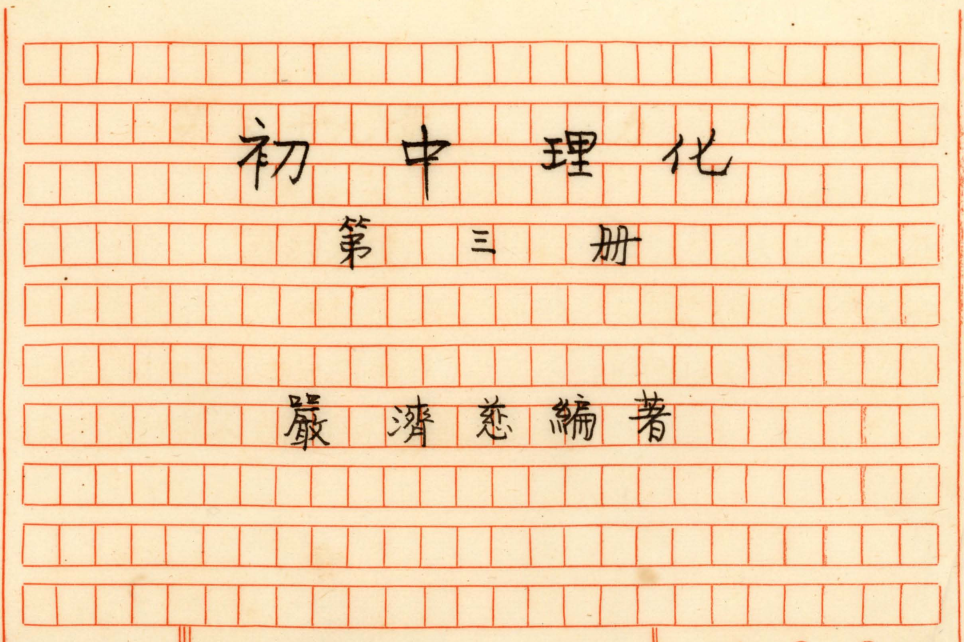 初中理化
第三册
嚴濟慈編著